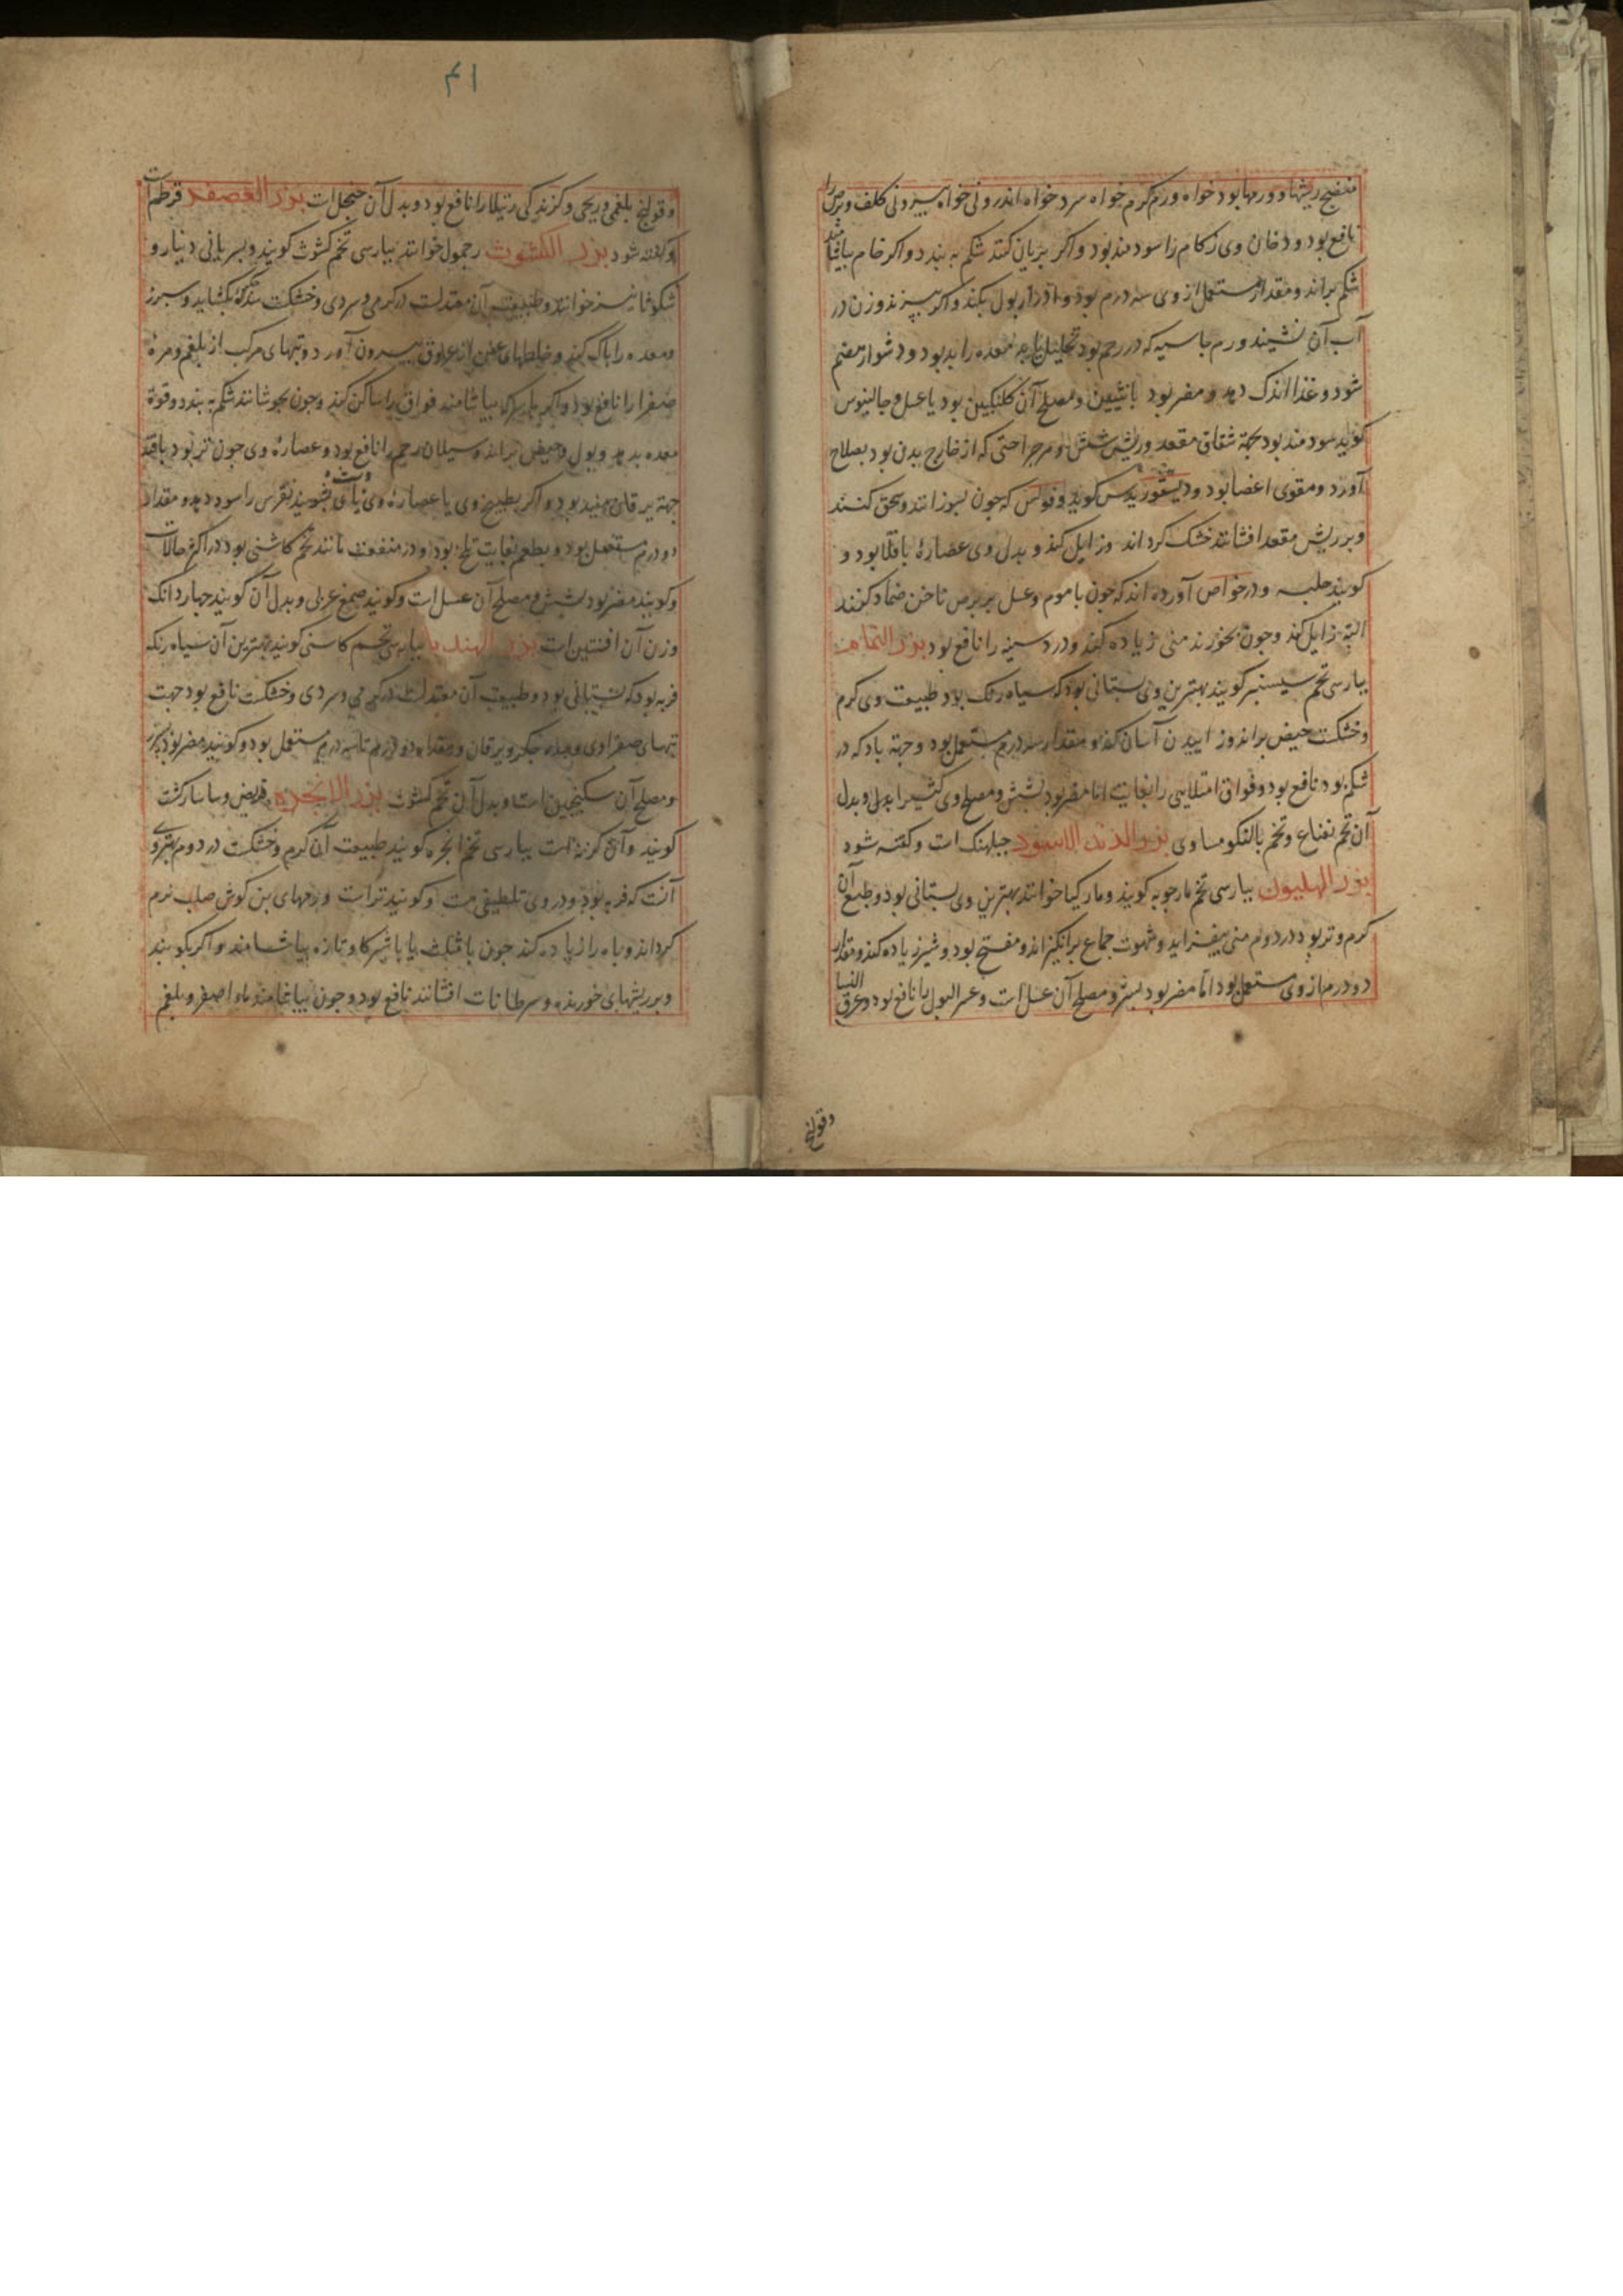 منضج ریشها و ورمها بود خواه ورم کرم خواه سرد خواه اندرونی خواه بیرونی کلف و برص را
نافع بود و دخان وی زکام را سودمند بود و اکر بریان کنند شکم به بندد و اکر خام بیاشامند
شکم براند و مقدار مستعمل از وی سه درم بود و ادرار بول بکند و اکر بپزند و زن در
آب آن نشیند ورم جاسیه که در رحم بود تحلیل یابد معده را بد بود و دشوار هضم
شود و غذا اندک دهد و مضر بود بانثیین و مصلح آن سکنکبین بود یا عسل و جالینوس
کوید سودمند بود بجهة شقاق مقعد و ریش شش و هر جراحتی که از خارج بدن بود بصلاح
آورد و مقوی اعضا بود و دیسقوریدس کوید و فولس که چون بسوزانند و سحق کنند
و بر ریش مقعد افشانند خشک کرداند و زایل کند و بدل وی عصارهٔ باقلا بود و
کویند حلبه و در خواص آورده اند که چون با موم و عسل بر برص ناخن ضماد کنند
البته زایل کند و چون بخورند منی زیاده کند و درد سینه را نافع بود بزر النمام
بپارسی تخم سیسنبر کویند بهترین وی بستانی بود که سیاه رنک بود طبیعت وی کرم
و خشکست حیض براند و زاییدن آسان کند و مقدار سه درم مستعمل بود و جهة باد که در
شکم بود نافع بود و فواق امتلایی را بغایت اما مضر بود بشش و مصلح وی کثیرا بدل و بدل
آن تخم نعناع و تخم بالنکو مساوی بزر الدند الاسود جبلهنک است و کفته شود
بزر الهلیون بپارسی تخم مارجوبه کویند و مارکیا خوانند بهترین وی بستانی بود و طبع آن
کرم و تر بود در دوم منی بیفزاید و شهوت جماع برانکیزاند و مفتح بود و شیر زیاده کند و مقدار
دو درم از وی مستعمل بود اما مضر بود بسپرز و مصلح آن عسل است و عسر البول را نافع بود و عرق النسا
و قولنج
۴۱
و قولنج بلغمی و ریحی و کزندکی رتیلا را نافع بود و بدل آن حنجل است بزر العصفر قرطم است
و کفته شود بزر الکشوث رجمول خوانند بپارسی تخم کشوث کویند و بسریانی دینار و
شکوثا نیز خوانند و طبیعت آن معتدلست در کرمی و سردی و خشکست سده بکشاید و سپرز
و معده را پاک کند و خلطهای عفن از عروق بیرون آورد و تبهای مرکب از بلغم و مرهٔ
صفرا را نافع بود و اکر با سرکه بیاشامند فواق را ساکن کند و چون بجوشانند شکم به بندد و قوة
معده بدهد و بول و حیض براند و سیلان رحم را نافع بود و عصارهٔ وی چون تر بود با قند
جهة یرقان مفید بود و اکر بطبیخ وی یا عصارهٔ وی پای بشویند نقرس را سود دهد و مقدار
دو درم مستعمل بود و بطعم بغایت تلخ بود و در منفعت مانند تخم کاسنی بود در اکثر حالات
و کویند مضر بود بشش و مصلح آن عسل است و کویند صمغ عربی و بدل آن کویند چهار دانک
وزن آن افسنتین است بزر الهندبا بپارسی تخم کاسنی کویند بهترین آن سیاه رنک
فربه بود که بستانی بود و طبیعت آن معتدلست در کرمی و سردی و خشکست نافع بود جهت
تبهای صفراوی و سده جکر و یرقان و مقدار دو درم تا سه درم مستعمل بود و کویند مضر بود بسپرز
و مصلح آن سکنجبین است و بدل آن تخم کشوث بزر الانجره قریض و ساسارکشت
کویند و آن کزنه است بپارسی تخم انجره کویند طبیعت آن کرم و خشکست در دوم بهترین
آنست که فربه بود و در وی تلطیفی هست و کویند تر است و ورمهای بن کوش صلب نرم
کرداند و باه را زیاده کند چون با مثلث یا با شیر کاو تازه بیاشامند و اکر بکوبند
و بر ریشهای خورنده و سرطانات افشانند نافع بود و چون بیاشامند ماء اصفر و بلغم